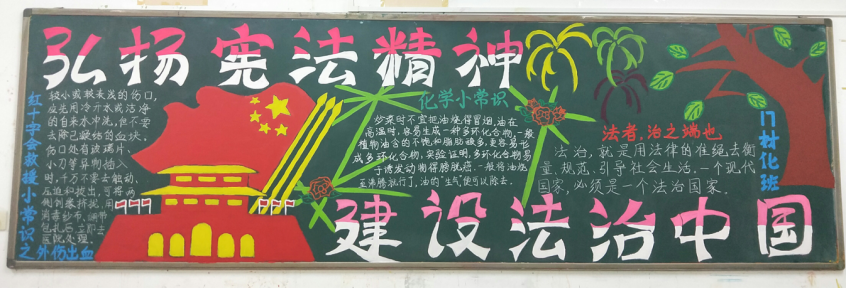 弘扬宪法精神
红十字会救援小常识之外伤出血
较小或较表浅的伤口,
应先用冷开水或洁净
的自来水冲洗,但不要
去除已凝结的血块.
伤口处有玻璃片、
小刀等异物插入
时,千万不要去触动、
压迫和拔出,可将两
侧创缘挤拢,用
包扎后立即去
医院处理.
化学小常识
炒菜时不宜把油烧得冒烟,油在
高温时,容易生成一种多环化合物,一般
植物油含的不饱和脂肪酸多,更容易形
成多环化合物,实验证明,多环化合物易
于诱发动物得膀胱癌.一般将油烧
至沸腾就行了,油的“生气”便可以除去.
法者,治之端也
法治,就是用法律的准绳去衡
量、规范、引导社会生活.一个现代
国家,必须是一个法治国家.
17材化班
建设法治中国